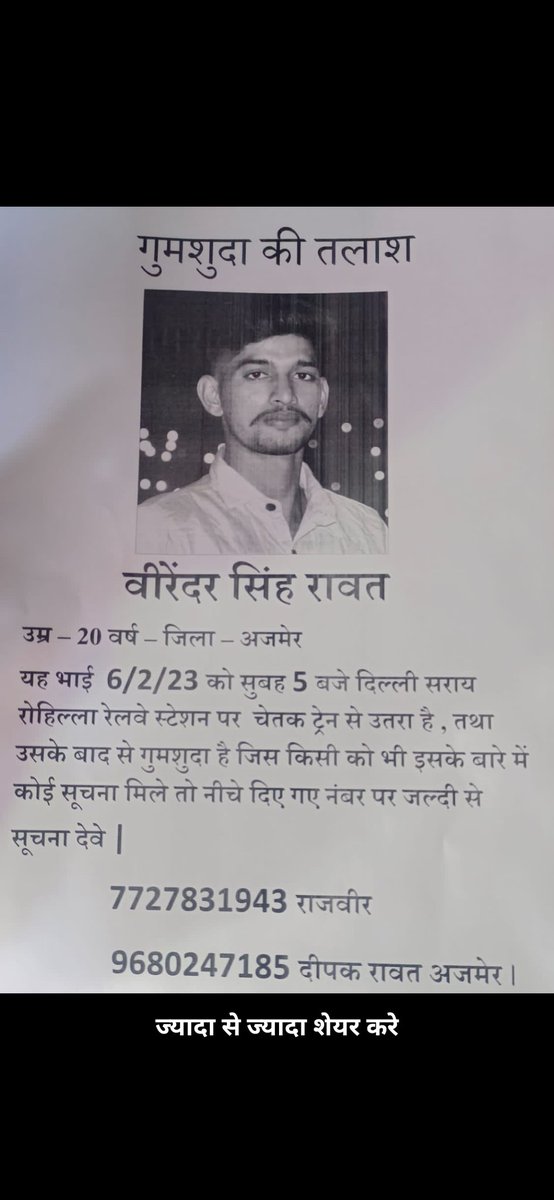 गुमशुदा की तलाश
वीरेंदर सिंह रावत
उम्र – 20 वर्ष – जिला – अजमेर
यह भाई 6/2/23 को सुबह 5 बजे दिल्ली सराय
रोहिल्ला रेलवे स्टेशन पर चेतक ट्रेन से उतरा है , तथा
उसके बाद से गुमशुदा है जिस किसी को भी इसके बारे में
कोई सूचना मिले तो नीचे दिए गए नंबर पर जल्दी से
सूचना देवे |
7727831943 राजवीर
9680247185 दीपक रावत अजमेर |
ज्यादा से ज्यादा शेयर करे